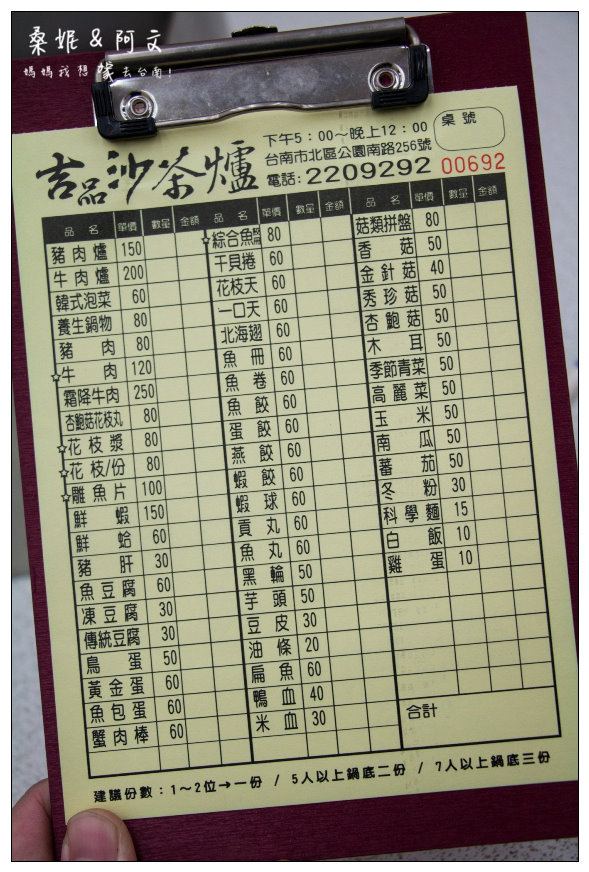 桑妮&阿文
媽媽我想嫁去台南!
吉品沙茶爐
下午5：00～晚上12：00
台南市北區公園南路256號
電話:2209292
桌號
00692
品名 單價 數量 金額
豬肉爐 150
牛肉爐 200
韓式泡菜 60
養生鍋物 80
豬肉 80
☆牛肉 120
霜降牛肉 250
杏鮑菇花枝丸 80
☆花枝漿 80
☆花枝/份 80
☆鵰魚片 100
鮮蝦 150
鮮蛤 60
豬肝 30
魚豆腐 60
凍豆腐 30
傳統豆腐 30
鳥蛋 50
黃金蛋 60
魚包蛋 60
蟹肉棒 60
品名 單價 數量 金額
☆綜合魚 80
干貝捲 60
花枝天 60
一口天 60
北海翅 60
魚冊 60
魚卷 60
魚餃 60
蛋餃 60
燕餃 60
蝦餃 60
蝦球 60
貢丸 60
魚丸 60
黑輪 50
芋頭 50
豆皮 30
油條 20
扁魚 60
鴨血 40
米血 30
品名 單價 數量 金額
菇類拼盤 80
香菇 50
金針菇 40
秀珍菇 50
杏鮑菇 50
木耳 50
季節青菜 50
高麗菜 50
玉米 50
南瓜 50
蕃茄 50
冬粉 30
科學麵 15
白飯 10
雞蛋 10
合計
建議份數：1～2位→一份 / 5人以上鍋底二份 / 7人以上鍋底三份